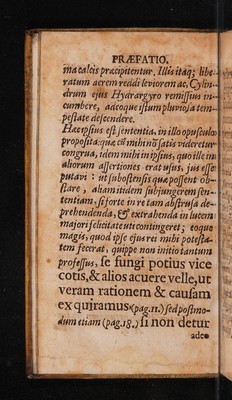 PRÆFATIO.
ma calcis præcipitentur. Illis itaq; libe-
ratum aerem reddi leviorem ac, Cylin-
drum ejus Hydrargyro remissius in-
cumbere, adeoque istum pluviosa tem-
pestate descendere.
Hæc ipsius est sententia, in illo opusculo
proposita: quæ cũ mihi nõ satis videretur
congrua, idem mihi in ipsius, quo ille in
aliorum assertiones erat usus, jus esse
putavi: ut subostensis quæ possent ob-
stare, aliam itidem subjungerem sen-
tentiam, si forte in re tam abstrusa de-
prehendenda, & extrahenda in lucem
majori felicitate uti contingeret; eoque
magis, quod ipse ejus rei mihi potesta-
tem fecerat, quippe non initio tantum
professus, se fungi potius vice
cotis, & alios acuere velle, ut
veram rationem & causam
exquiramus (pag. 11.) sed postmo-
dum etiam (pag. 18.) si non detur
adeo